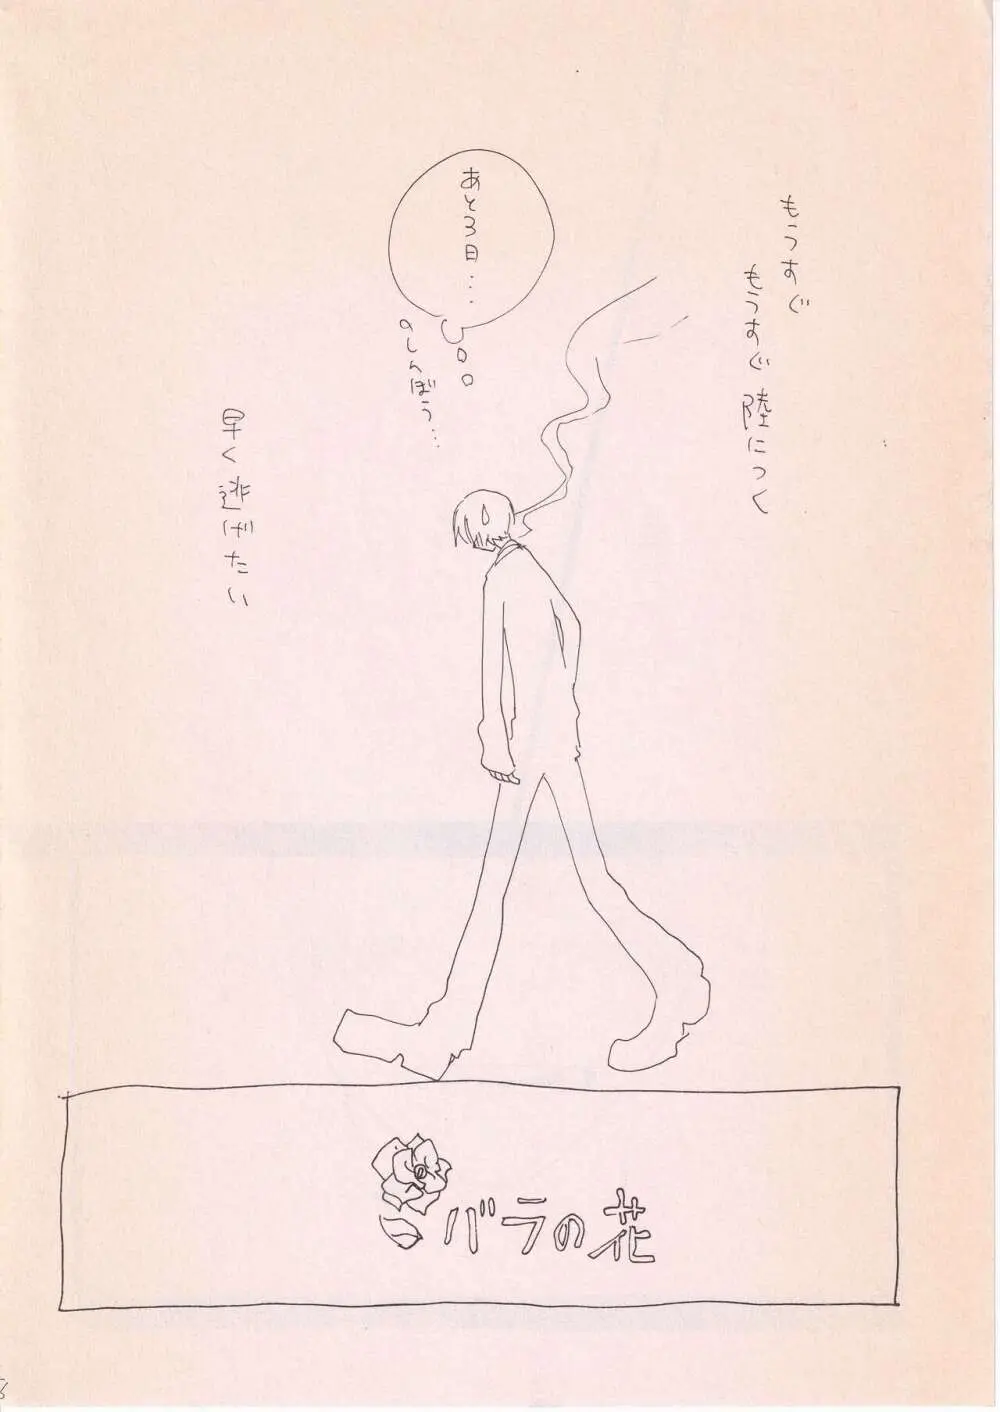 もうすぐ
もうすぐ 陸につく
あと3日...
のしんぼう...
早く逃げたい
バラの花